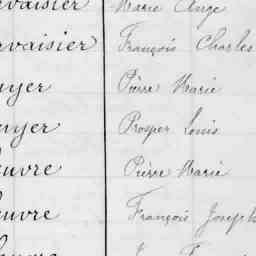 rvaisier Marie Ange
rvaisier François Charles
uyer Pierre Marie
uyer Prosper Louis
euvre Pierre Marie
euvre François Joseph